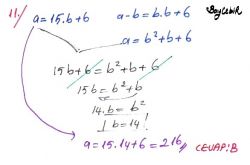 11./ a=15.b+6
a-b=b.b+6
a=b²+b+6
15b+6=b²+b+6
15b=b²+b
14.b=b²
b=14!
a=15.14+6=216
CEVAP:B